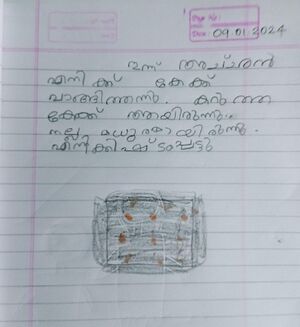 Page No:
Date: 09.01.2024
ഇന്ന് അച്ഛൻ
എനിക്ക് കേക്ക്
വാങ്ങിത്തന്നു. കറുത്ത
കേക്ക് ആയിരുന്നു.
നല്ല മധുരമായിരുന്നു.
എനിക്കിഷ്ടപ്പെട്ടു